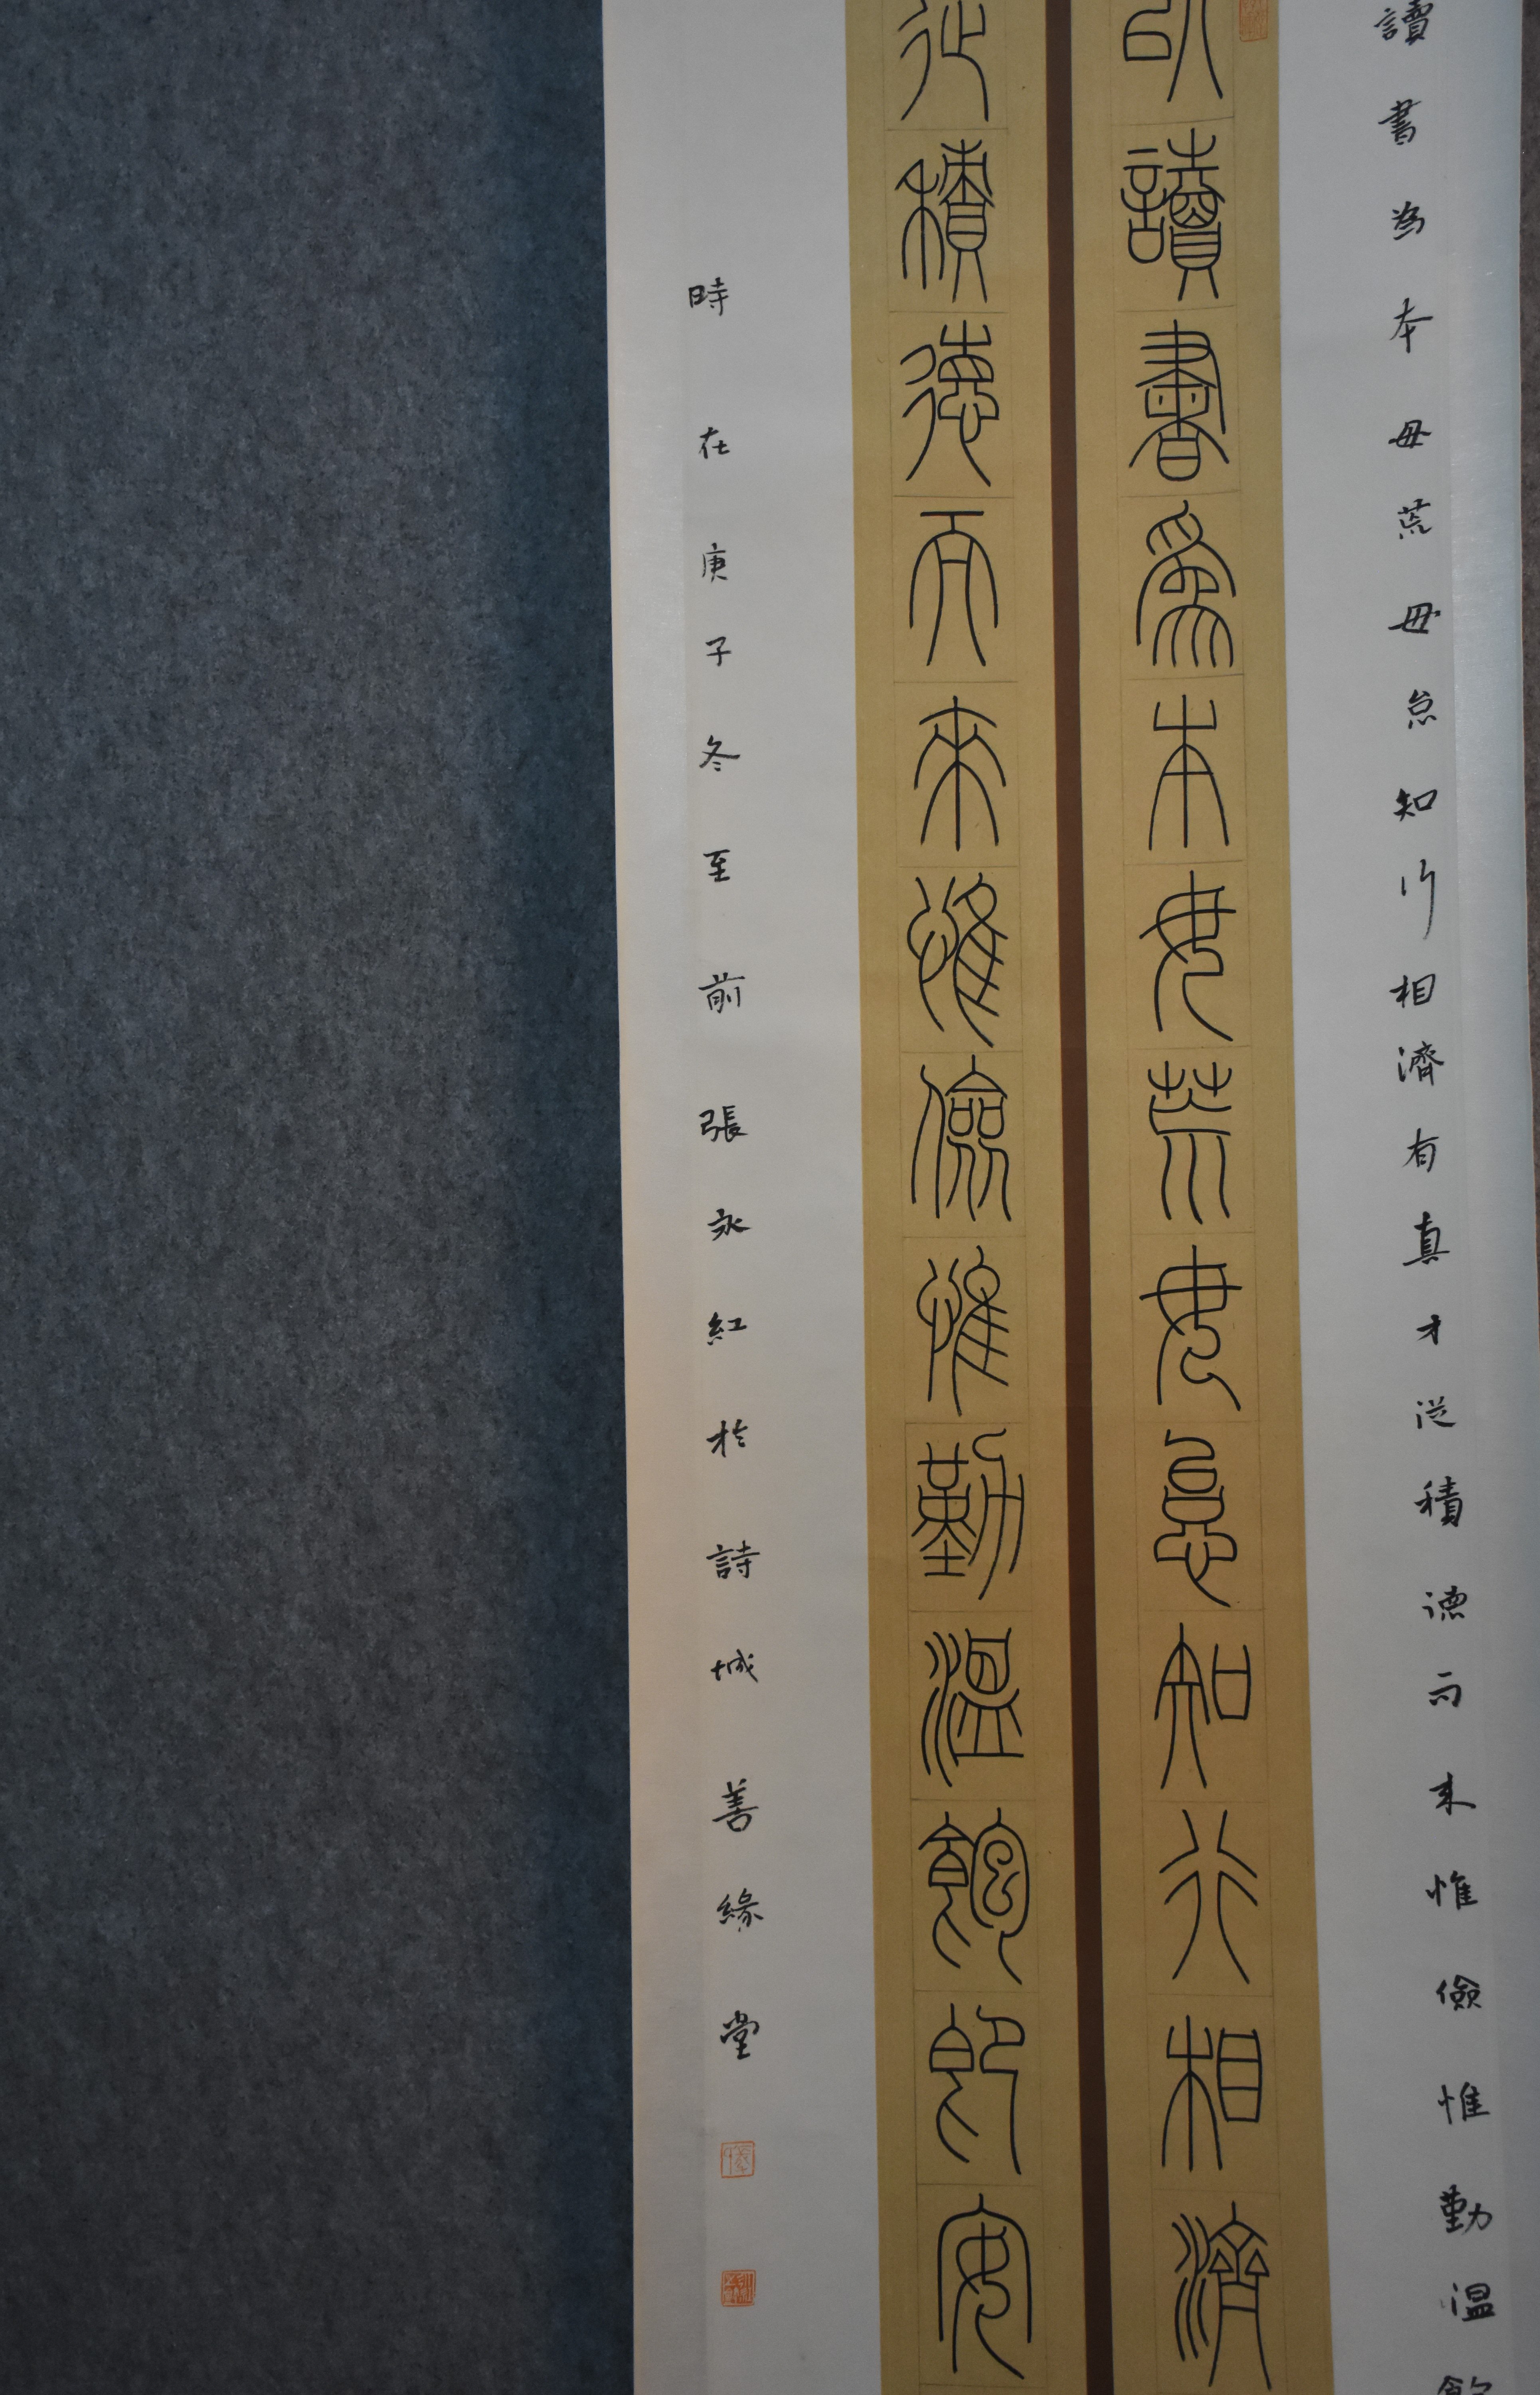 讀書為本毋荒毋怠知行相濟有真才從積德而来惟儉惟勤溫飽
以讀書爲本毋荒毋怠知行相濟
從積德而來惟儉惟勤溫飽即安
時在庚子冬至前張永紅於詩城善緣堂